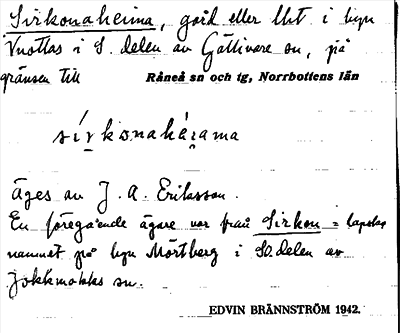 Sirkonaheima, gård eller lht i byn
Vuottas i S. delen av Gällivare sn, på
gränsen till Råneå sn och tg, Norrbottens län
sírkonahárama
Äges av J. A. Eriksson.
En föregående ägare var från Sirkon = lapska
namnet på byn Mörtberg i SO. delen av
Jokkmokks sn.
EDVIN BRÄNNSTRÖM 1942.